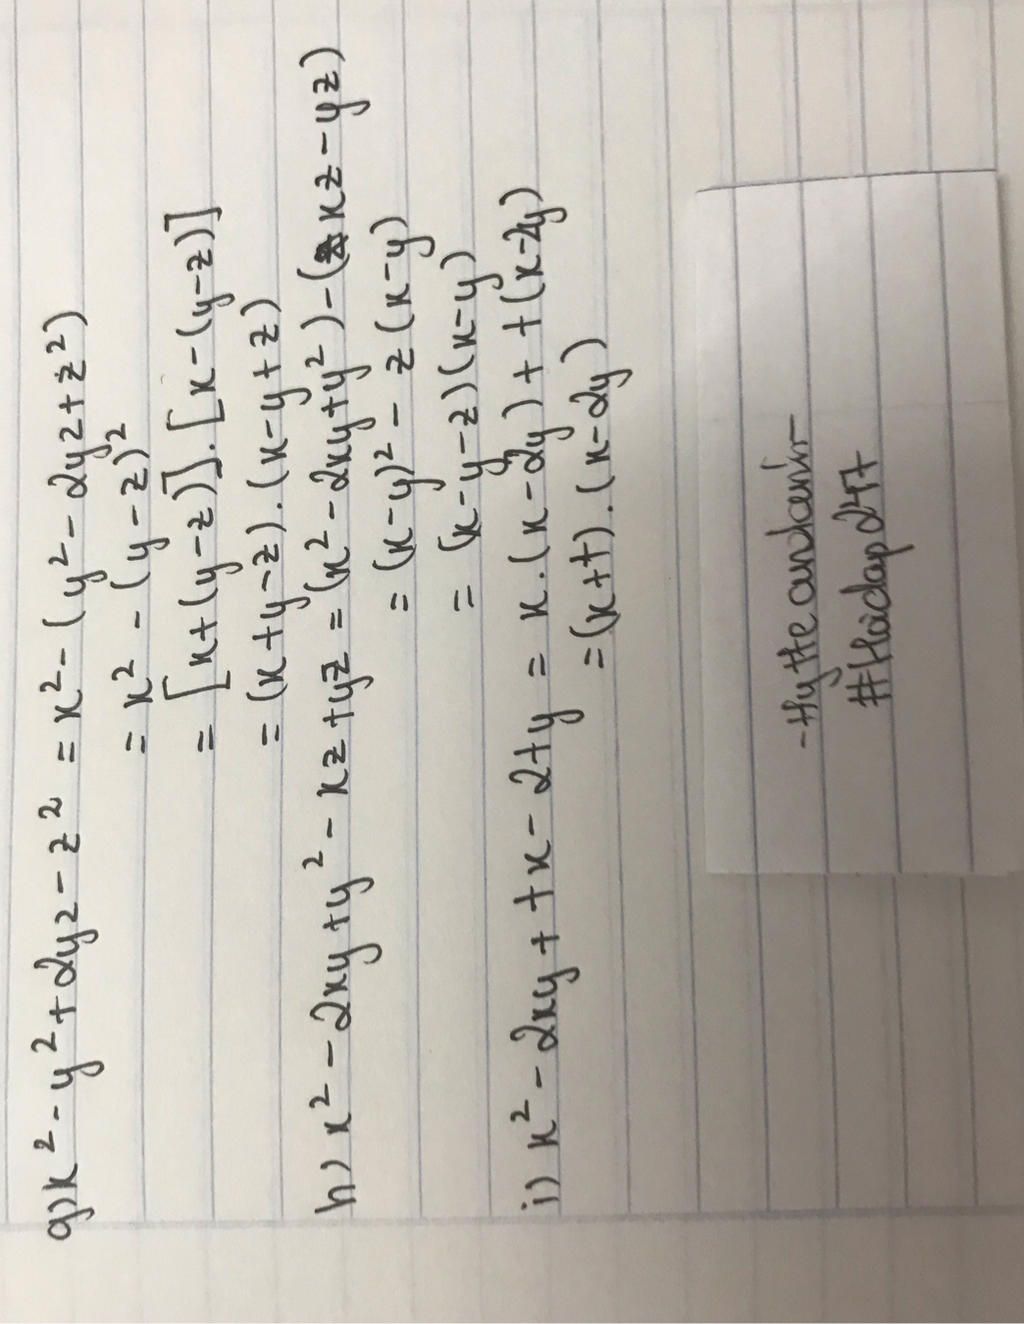 g) x² - y² + 2yz - z² = x² - (y² - 2yz + z²)
= x² - (y - z)²
= [x + (y - z)] . [x - (y - z)]
= (x + y - z) . (x - y + z)
h) x² - 2xy + y² - xz + yz = (x² - 2xy + y²) - (xz - yz)
= (x - y)² - z (x - y)
= (x - y - z) (x - y)
i) x² - 2xy + tx - 2ty = x . (x - 2y) + t (x - 2y)
= (x + t) . (x - 2y)
#Hoidap247